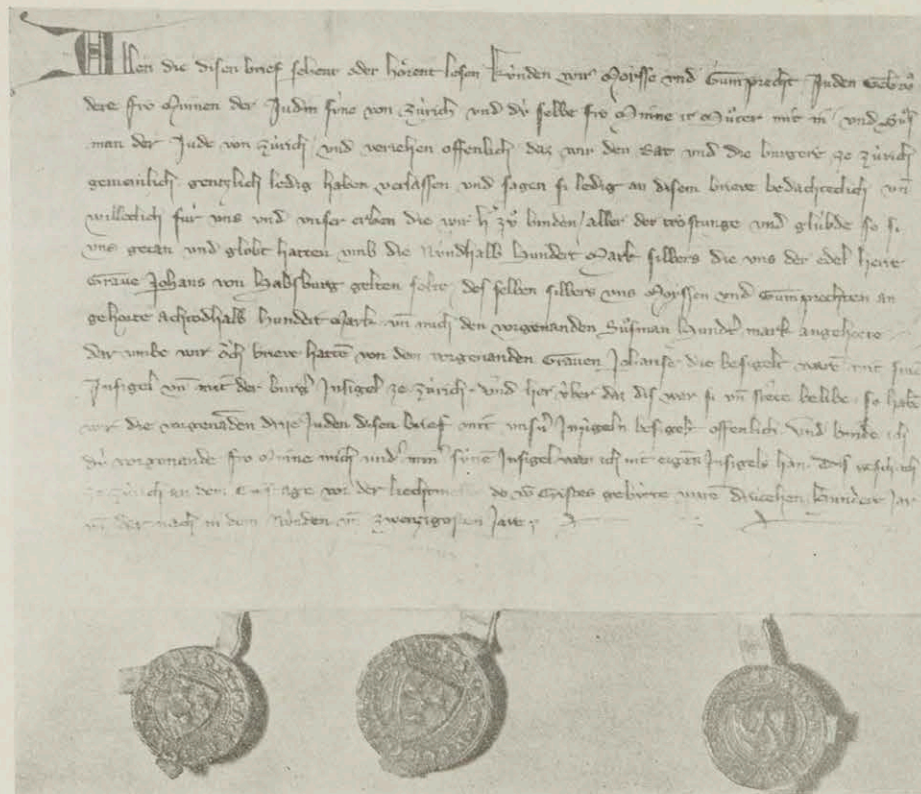 Allen die disen brief sehent oder hoͤrent lesen Kuͥnden wir Moysse vnd Guͦmprecht Juden Gebruͦ
dere fro Minnen der Judin suͥne von Zuͥrich vnd duͥ selbe fro Minne ir Muͦter mit in vnd Suͦs
man der Jude von Zuͥrich vnd veriehen offenlich daz wir den Rat vnd die burgere ze Zuͥrich
gemeinlich gentzlich ledig haben verlassen vnd sagen si ledig an disem brieve bedachteclich vn̄
willeclich fuͥr vns vnd vnser erben die wir h' zuͦ binden aller der trostunge vnd gluͥbde so si
vns getan vnd globt hatten vmb die Nuͥndhalb Hundert Mark silbers die vns der edel herre
Grave Johans von Habsburg gelten solte des selben silbers vns Moyssen vnd Guͦmprechten an
gehorte achtodhalb hundert Mark vn̄ mich den vorgenanden Suͦsman Hundert mark angehorte
dar vmbe wir oͮch brieve hatten von dem vorgenanden Graven Johanse die besigelt waren mit sim
Insigel vn̄ mit der burger Insigel ze Zuͥrich vnd her vͥber daz dis war si vn̄ stete belibe so haben
wir die vorgenanden drije Juden disen brief mit vnsern Insigeln besigelt offenlich vnd binde ich
duͥ vorgenande fro Minne mich vnder miner suͥne Insigel wan ich nit eigens Insigels han Dis beschach
ze Zuͥrich an dem tage vor der liechtmes do von Cristes gebuͥrte waren druͥcehen hundert jar
vn̄ dar nach in dem Nuͥnden vn̄ zwenzigosten Jare